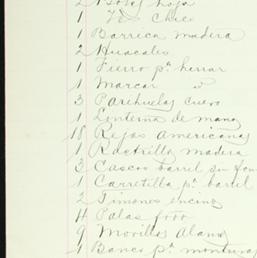 2 Botas hoja
1 Id. Chica
1 Barrica madera
2 Huacales
1 Fierro pª herrar
1 Marcar
3 Parihuelas cuero
1 Linterna de mano
18 Rejas americanas
1 Rastrillo madera
3 Cascos barril sin fon
1 Carretilla pª barril
2 Timones encino
4 Palas foo
9 Morillos Alamo
1 Banco pª monturas